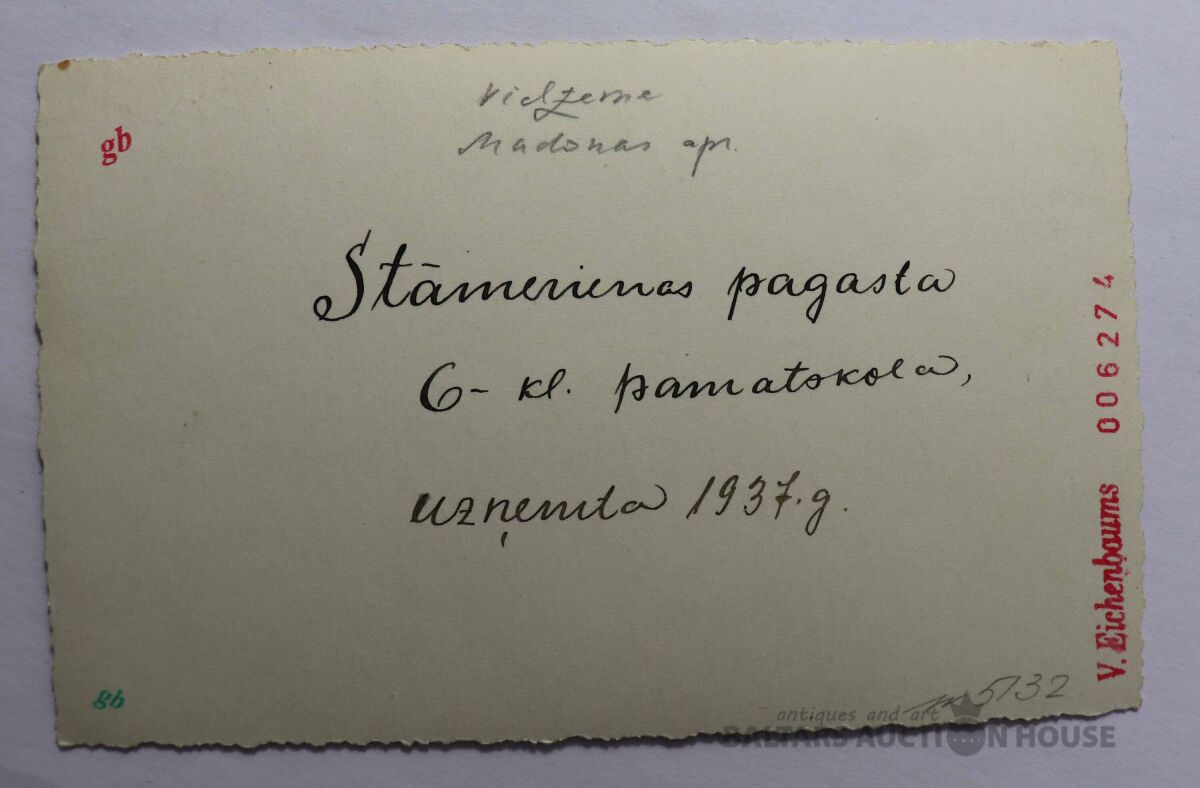 Vidzeme
Madonas apr.
gb
Stāmerienas pagasta
6- kl. pamatskola,
uzņemta 1937.g.
V. Eichenbaums 006274
gb
5132
antiques and art
BALTARS AUCTION HOUSE